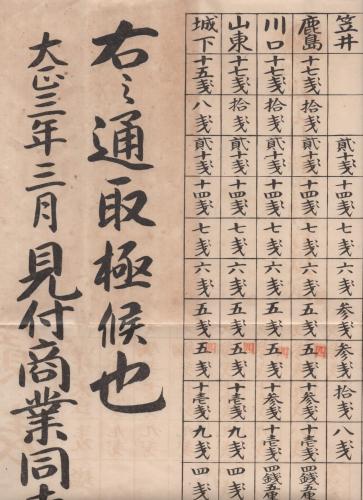 笠井 貳十戋 十四戋 七戋 六戋 参戋 参戋 拾戋 八戋
鹿島 十七戋 拾戋 貳十戋 十四戋 七戋 六戋 五戋 五戋 四 十参戋 十壱戋 四銭五厘
川口 十七戋 拾戋 貳十戋 十四戋 七戋 六戋 五戋 五戋 四 十参戋 十壱戋 四銭五厘
山東 十七戋 拾戋 貳十戋 十四戋 七戋 六戋 五戋 五戋 四 十壱戋 九戋 四戋
城下 十五戋 八戋 貳十戋 十四戋 七戋 六戋 五戋 五戋 四 十壱戋 九戋 四戋
右之通取極候也
大正三年三月 見付商業同